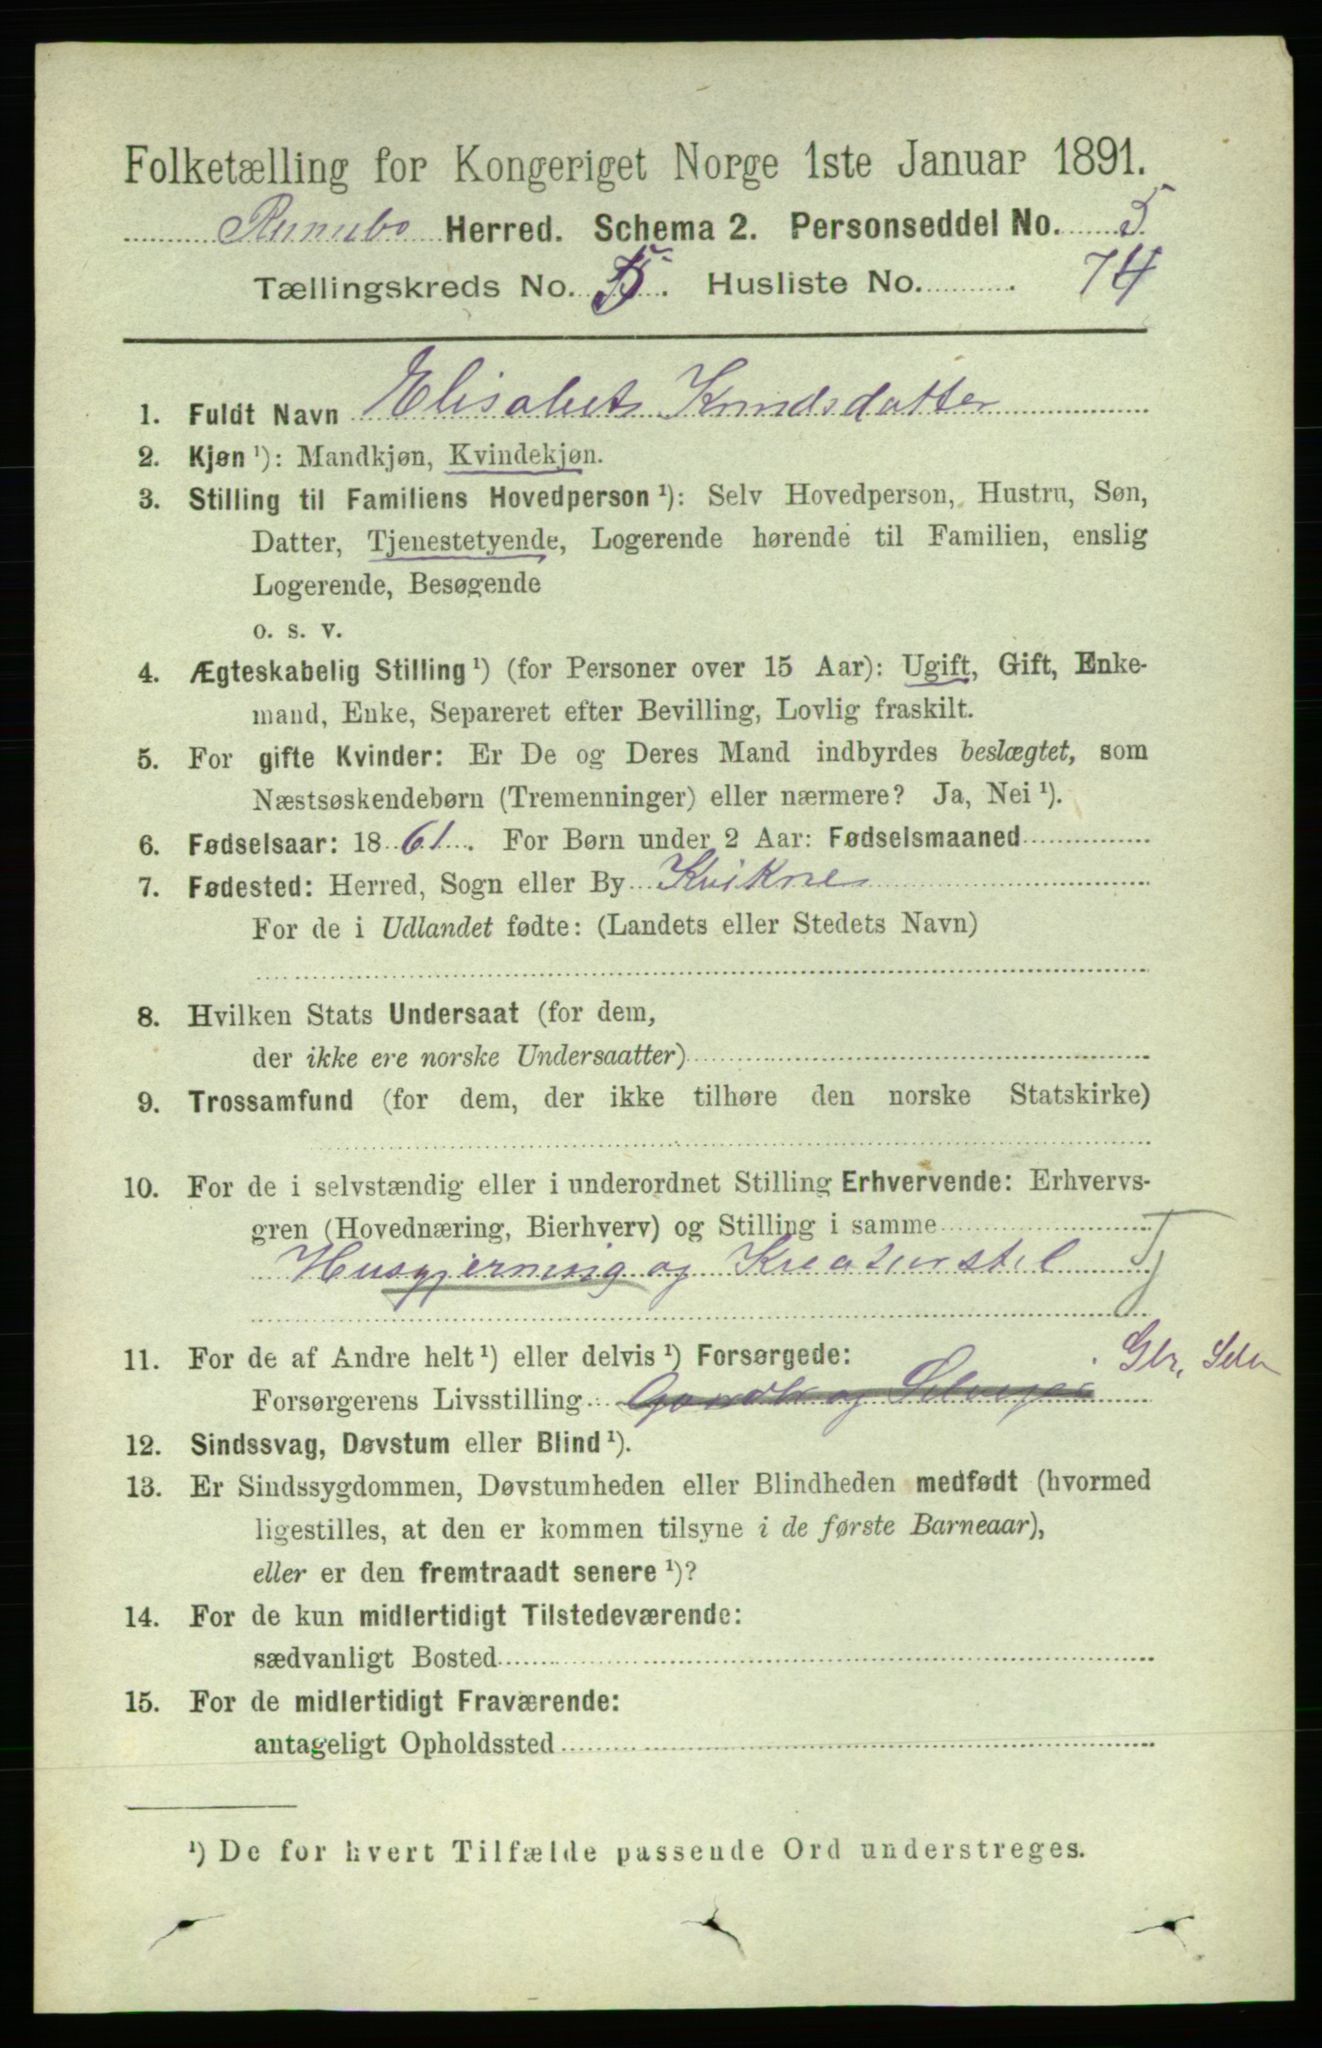 Folketælling for Kongeriget Norge 1ste Januar 1891.
Rennebo Herred. Schema 2. Personseddel No. 5
Tællingskreds No. 5. Husliste No. 74
1. Fuldt Navn Elisabet Knudsdatter
2. Kjøn ¹): Mandkjøn, Kvindekjøn.
3. Stilling til Familiens Hovedperson ¹): Selv Hovedperson, Hustru, Søn,
Datter, Tjenestetyende, Logerende hørende til Familien, enslig
Logerende, Besøgende
o. s. v.
4. Ægteskabelig Stilling ¹) (for Personer over 15 Aar): Ugift, Gift, Enke-
mand, Enke, Separeret efter Bevilling, Lovlig fraskilt.
5. For gifte Kvinder: Er De og Deres Mand indbyrdes beslægtet, som
Næstsøskendebørn (Tremenninger) eller nærmere? Ja, Nei ¹).
6. Fødselsaar: 1861. For Børn under 2 Aar: Fødselsmaaned
7. Fødested: Herred, Sogn eller By Kvikne
For de i Udlandet fødte: (Landets eller Stedets Navn)
8. Hvilken Stats Undersaat (for dem,
der ikke ere norske Undersaatter)
9. Trossamfund (for dem, der ikke tilhøre den norske Statskirke)
10. For de i selvstændig eller i underordnet Stilling Erhvervende: Erhvervs-
gren (Hovednæring, Bierhverv) og Stilling i samme
Husgjerning og Kreaturstel Tj
11. For de af Andre helt ¹) eller delvis ¹) Forsørgede: Gbr, Selv
Forsørgerens Livsstilling Gaardb og Selveier
12. Sindssvag, Døvstum eller Blind ¹).
13. Er Sindssygdommen, Døvstumheden eller Blindheden medfødt (hvormed
ligestilles, at den er kommen tilsyne i de første Barneaar),
eller er den fremtraadt senere ¹)?
14. For de kun midlertidigt Tilstedeværende:
sædvanligt Bosted
15. For de midlertidigt Fraværende:
antageligt Opholdssted
¹) De for hvert Tilfælde passende Ord understreges.